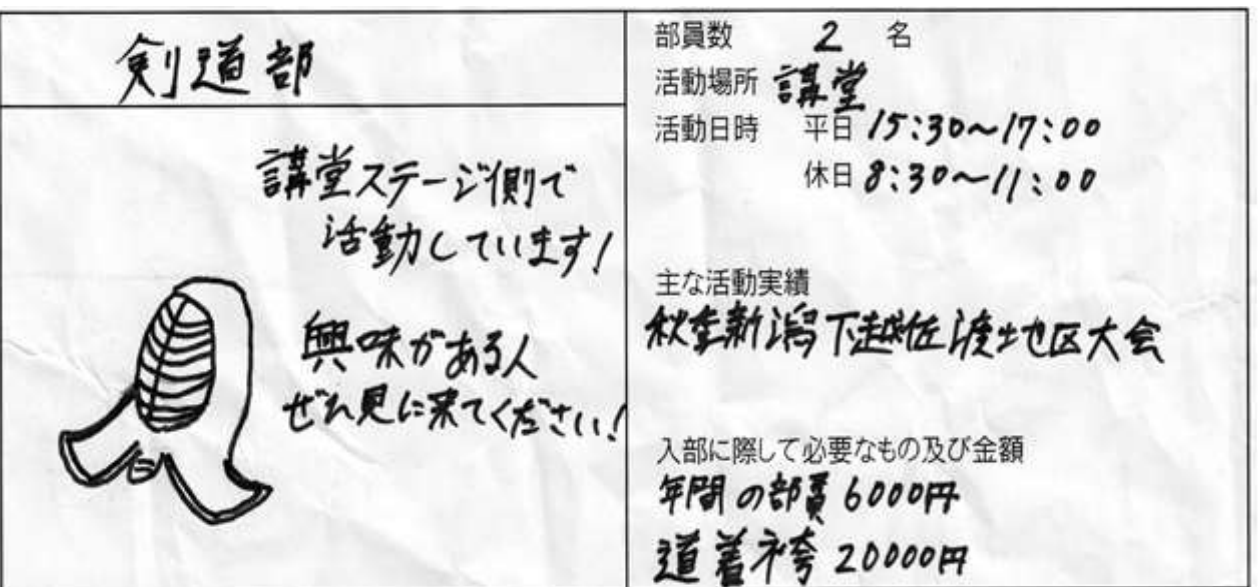 剣道部
講堂ステージ側で
活動しています!
興味がある人
ぜひ見に来てください!
部員数 2 名
活動場所 講堂
活動日時 平日 15:30~17:00
休日 8:30~11:00
主な活動実績
秋季新潟下越佐渡地区大会
入部に際して必要なもの及び金額
年間の部費 6000円
道着袴 20000円